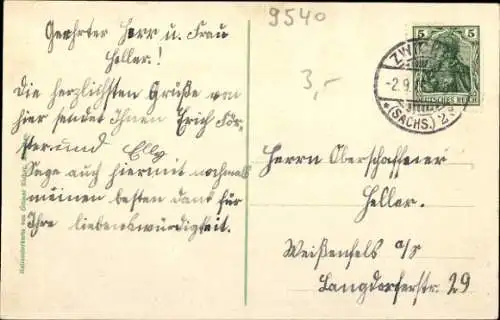 9540
Geehrter Herr u. Frau
Heller.!
3,-
Die herzlichsten Grüße von
hier sendet Ihnen Erich För-
ster. und Elly
Sage auch hiermit nochmals
meinen besten Dank für
Ihre liebenswürdigkeit.
5 5
ZWICK
-2.9.
DEUTSCHES REICH
*(SACHS.) 2
Herrn Oberschaffener
Heller.
Weißenfels a/S
Langdorferstr. 29
Kolonderkarte von